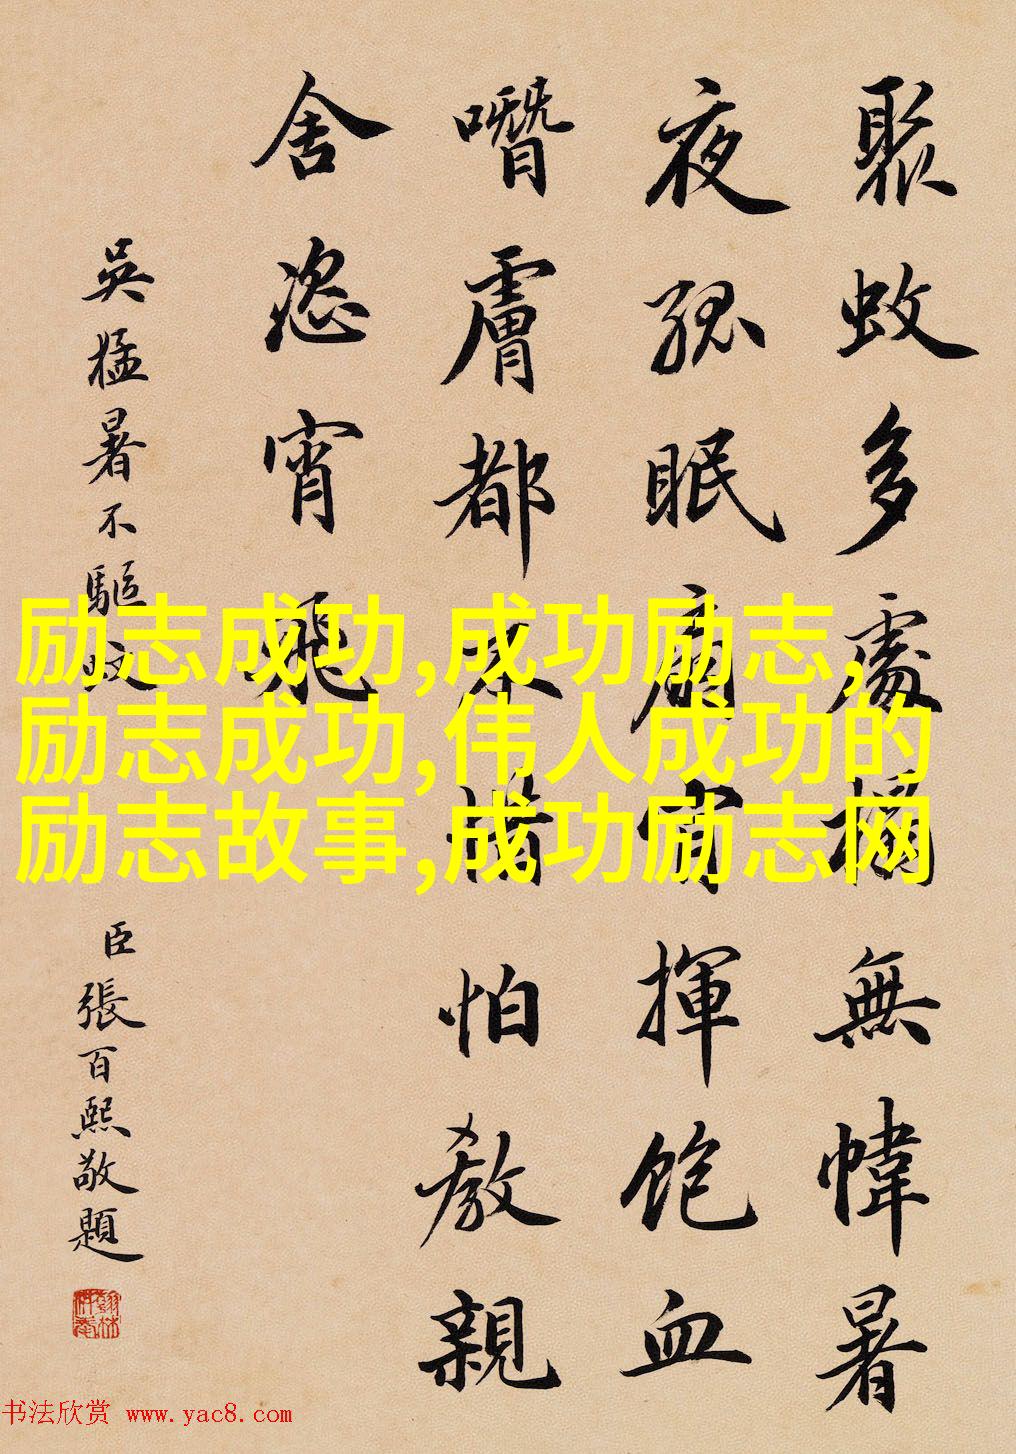 聚蚊多處榻無幃暑
夜孤眠扇肯揮飽血
噆膚都不惜怕教親
舍恣宵飛
吳猛暑不驅蚊
臣張百熙敬題
励志成功,成功励志,
励志成功,伟人成功的
励志故事,成功励志网
书法欣赏 www.yac8.com